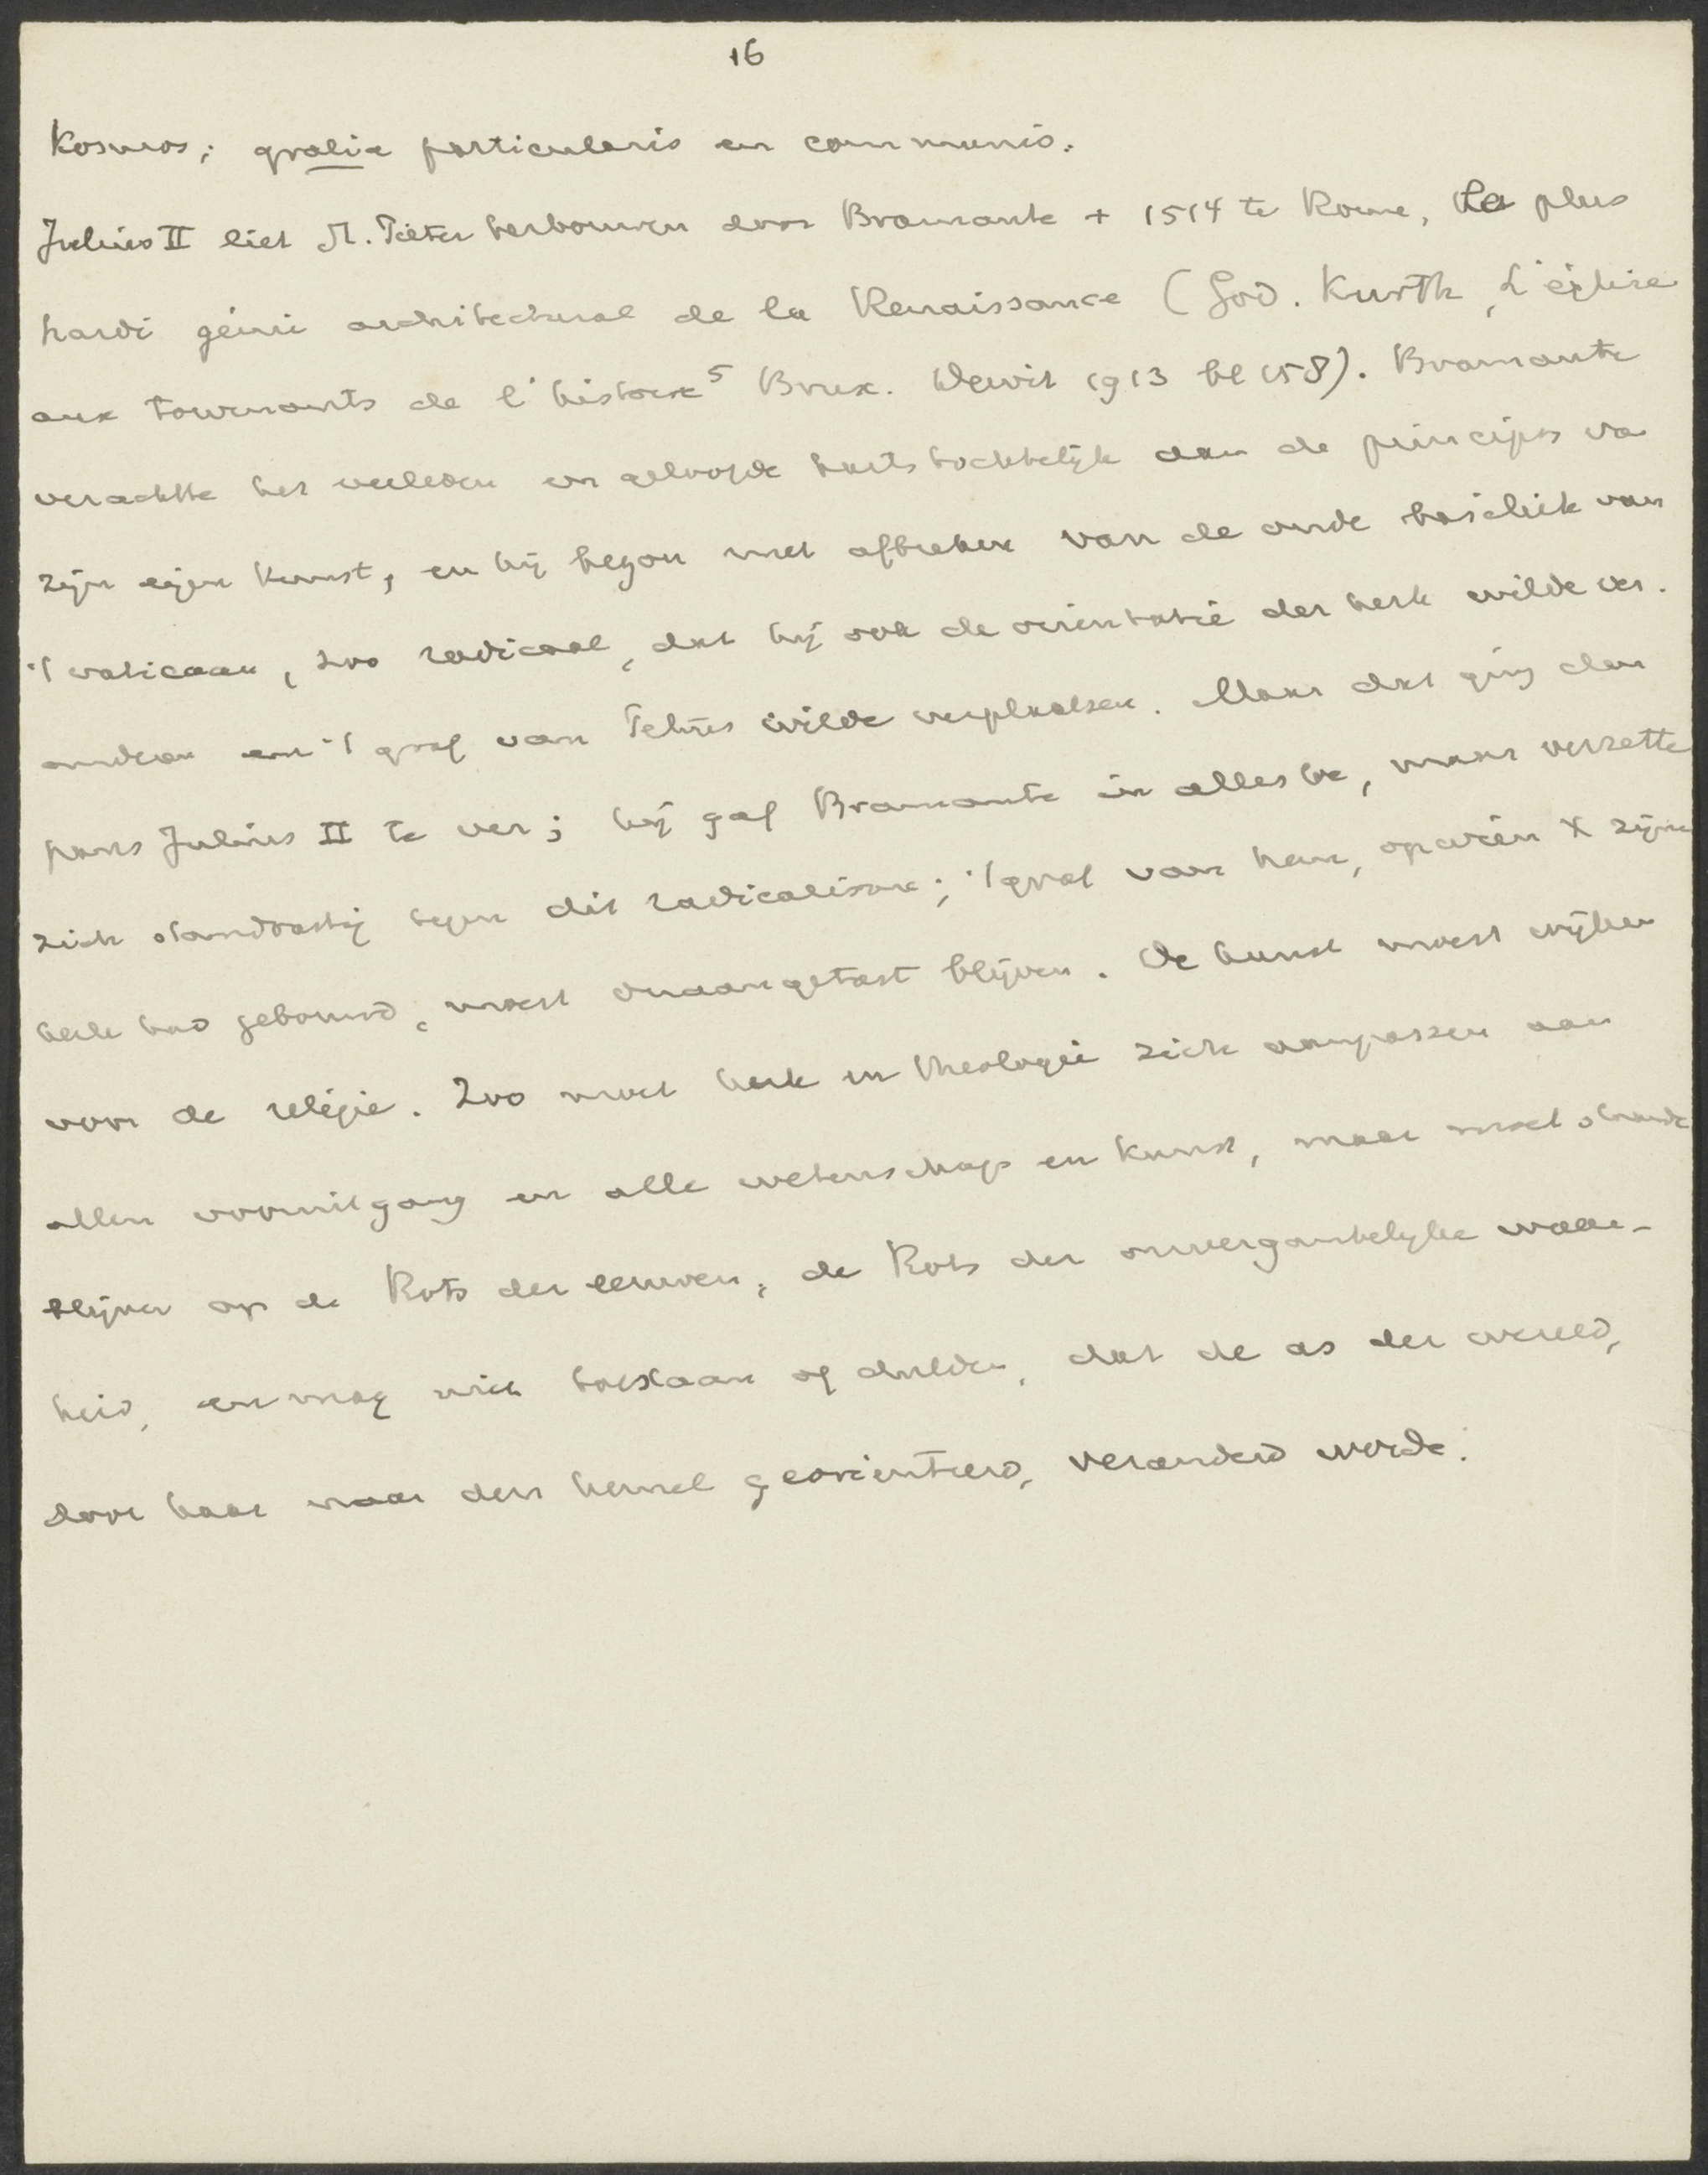 16
Kosmos; gratia particularis en communis.
Julius II liet St. Pieter herbouwen door Bramante + 1514 te Rome, le plus
hardi génie architectural de la Renaissance (God. Kurth, L'église
aux tournants de l'histoire⁵ Brux. Dewit 1913 bl 158). Bramante
verachtte het verleden en geloofde hartstochtelijk aan de principes va
zijn eigen kunst, en hij begon met afbreken van de oude basiliek van
't vaticaan, zoo radicaal, dat hij ook de orientatie der kerk wilde ver.
anderen en 't graf van Petrus wilde verplaatsen. Maar dat ging den
paus Julius II te ver; hij gaf Bramante in alles toe, maar verzette
zich standvastig tegen dit radicalisme; 't graf van hem, op wien X zijne
kerk had gebouwd, moest onaangetast blijven. De kunst moest wijken
voor de religie. Zoo moet kerk en theologie zich aanpassen aan
allen vooruitgang en alle wetenschap en kunst, maar moet staande
blijven op de Rots der eeuwen, de Rots der onvergankelijke waar-
heid, en mag niet toestaan of dulden, dat de as der wereld,
door haar naar den hemel georienteerd, veranderd worde.